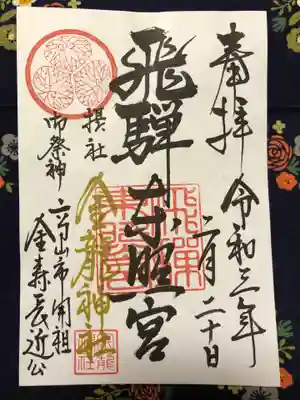 奉拝
令和三年
二月二十日
飛騨東照宮
摂社
金龍神社
御祭神
高山市開祖
金森長近公